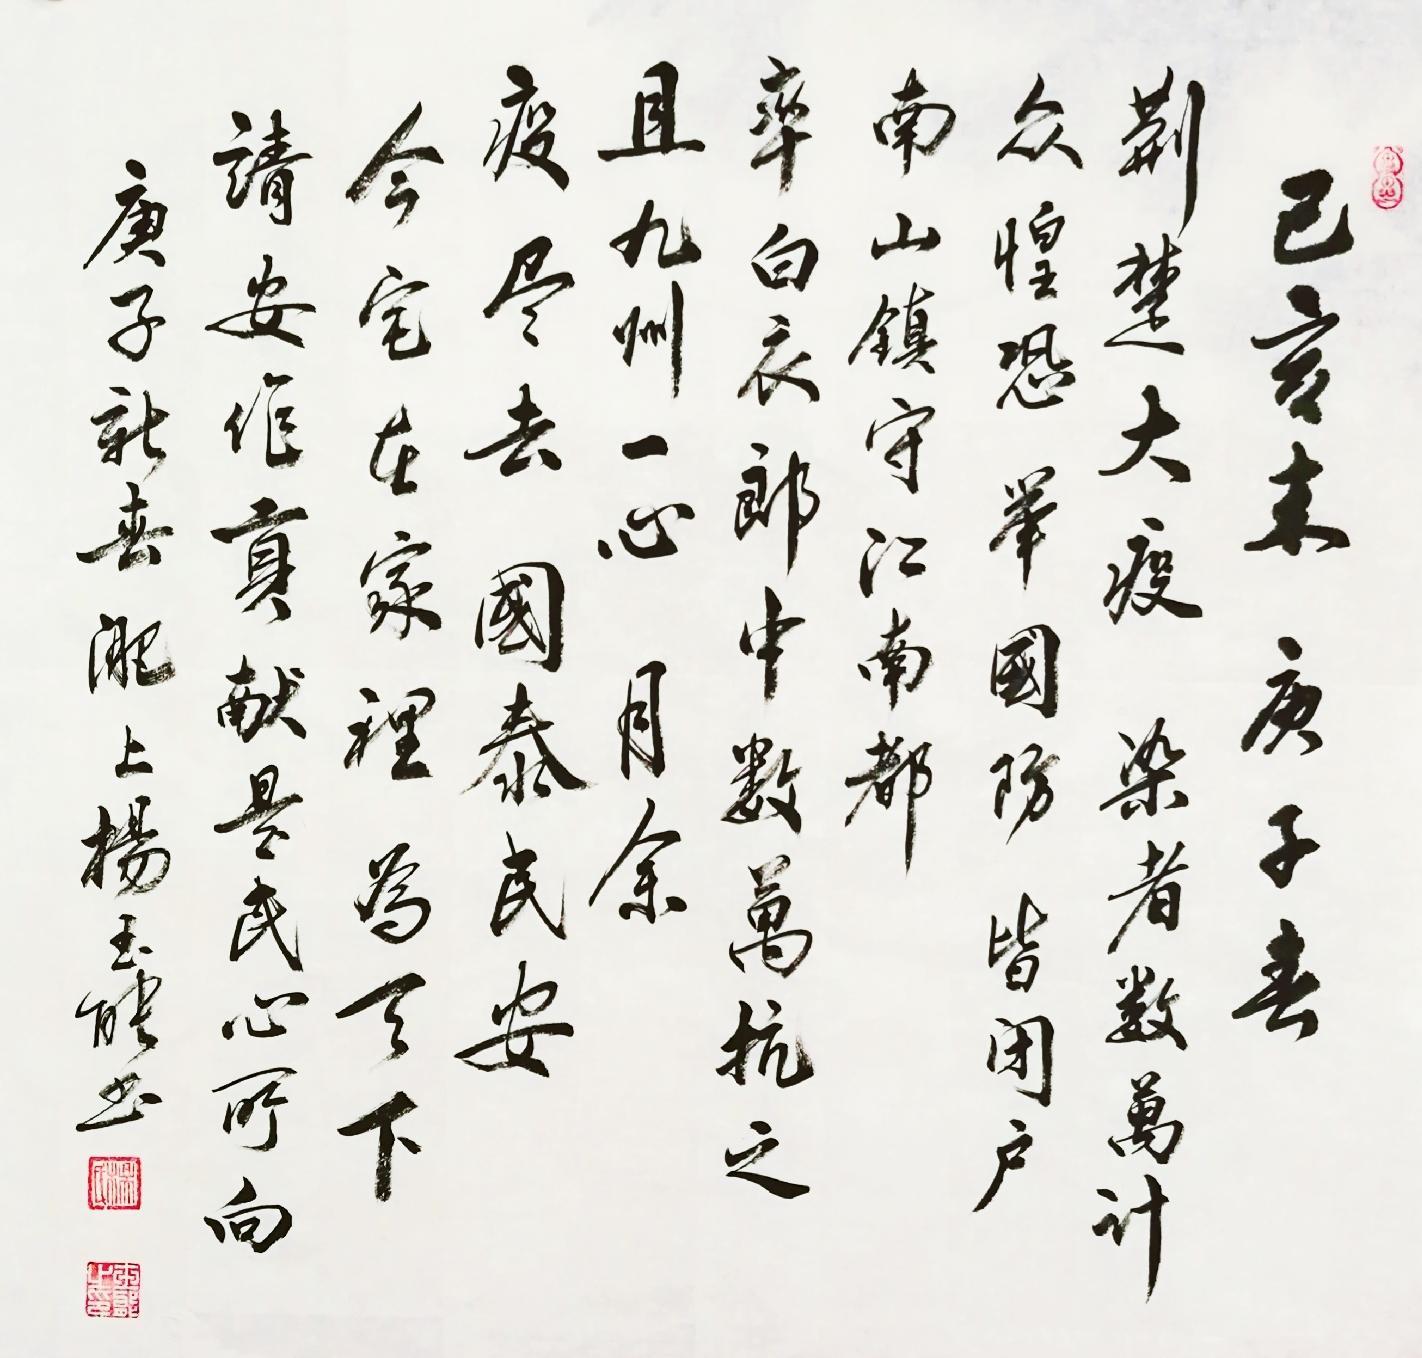 己亥末 庚子春
荆楚大疫 染者数萬计
众惶恐 举國防 皆闭户
南山鎮守江南都
率白衣郎中数萬抗之
且九州一心 月余
疫尽去 國泰民安
今宅在家裡 为天下
請安作貢献是民心所向
庚子新春 淝上楊玉能书